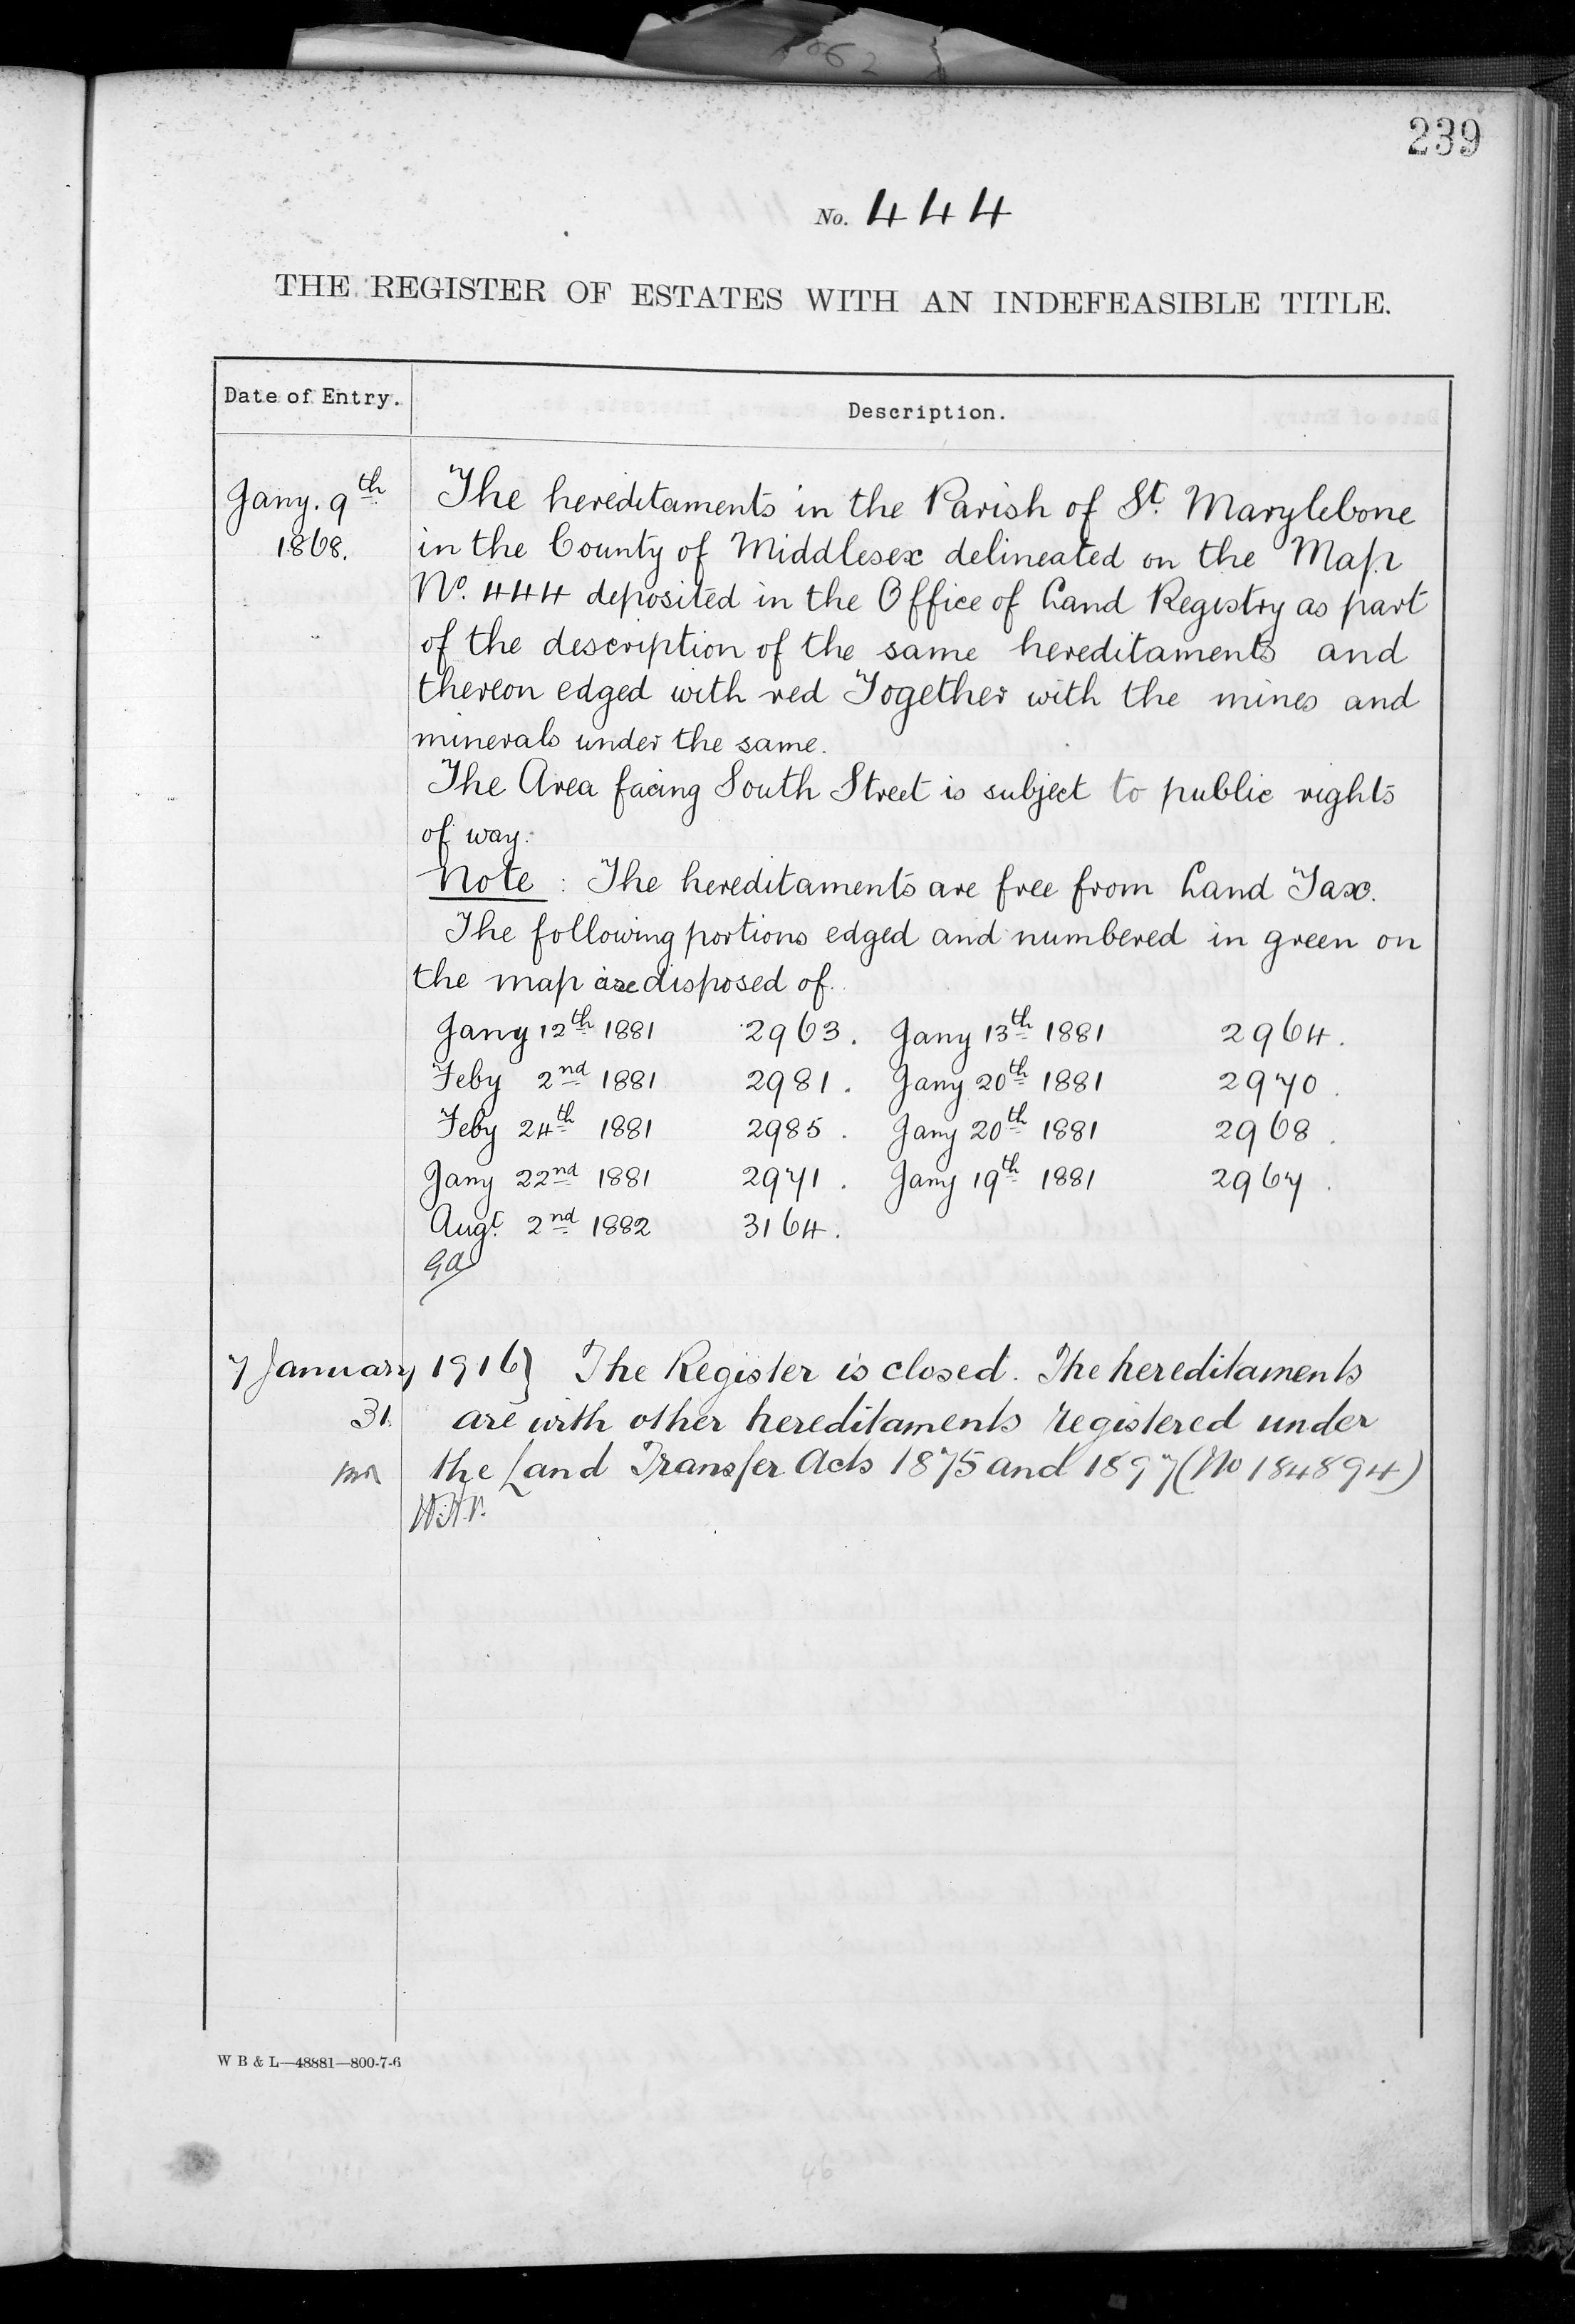 239
No. 444
THE REGISTER OF ESTATES WITH AN INDEFEASIBLE TITLE.
Date of Entry.
Description.
Jany. 9th
1868.
The hereditaments in the Parish of St. Marylebone
in the County of Middlesex delineated on the Map
No. 444 deposited in the Office of Land Registry as part
of the description of the same hereditaments and
thereon edged with red Together with the mines and
minerals under the same.
The Area facing South Street is subject to public rights
of way.
Note : The hereditaments are free from Land Tax.
The following portions edged and numbered in green on
the map are disposed of.
Jany 12th 1881 2963. Jany 13th 1881 2964.
Feby 2nd 1881 2981. Jany 20th 1881 2970.
Feby 24th 1881 2985. Jany 20th 1881 2968.
Jany 22nd 1881 2971. Jany 19th 1881 2967.
Augt. 2nd 1882 3164.
7 January 1916} The Register is closed. The hereditaments
31. are with other hereditaments registered under
the Land Transfer Acts 1875 and 1897 (No 184894)
W B & L—48881—800-7-6